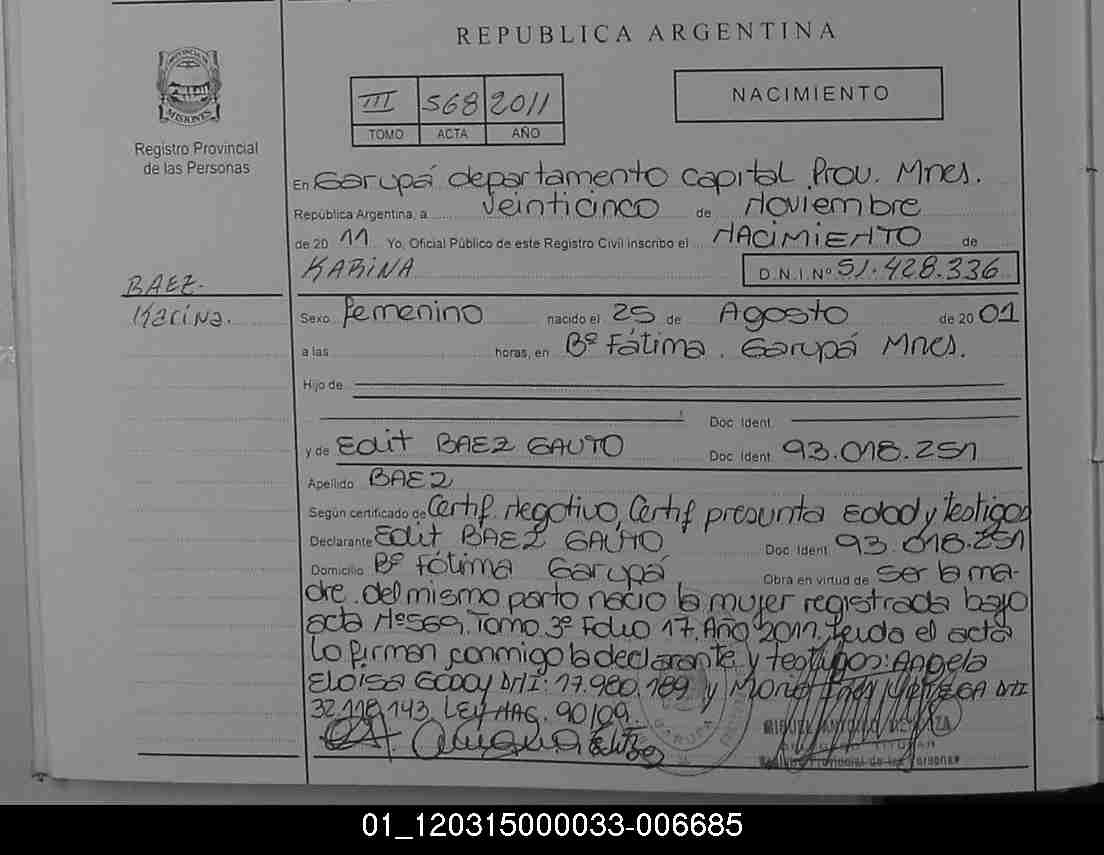 REPUBLICA ARGENTINA
PROVINCIA DE
MISIONES
Registro Provincial
de las Personas
III 568 2011
TOMO ACTA AÑO
NACIMIENTO
En Garupá departamento Capital Prov. Mnes.
República Argentina, a veinticinco de Noviembre
de 20 11 Yo, Oficial Público de este Registro Civil inscribo el NACIMIENTO de
KARINA D.N.I. Nº 51.428.336
BAEZ.
Karina.
Sexo Femenino nacido el 25 de Agosto de 20 01
a las horas, en Bº Fátima. Garupá Mnes.
Hijo de
Doc. Ident.
y de Edit BAEZ GAUTO Doc. Ident. 93.018.251
Apellido BAEZ
Según certificado de Certif. Negativo, Certif presunta Edad y testigos
Declarante Edit BAEZ GAUTO Doc. Ident 93.018.251
Domicilio Bº Fátima Garupá Obra en virtud de ser la ma-
dre. del mismo parto nacio la mujer registrada bajo
acta Nº 569. Tomo 3º Folio 17. Año 2011. Leida el acta
Lo firman conmigo la declarante y testigos: Angela
ELOISA GODOY DNI: 17.980.189 y DNI
32.118.143 LEY NAC. 90/09.
GARUPA
01_120315000033-006685